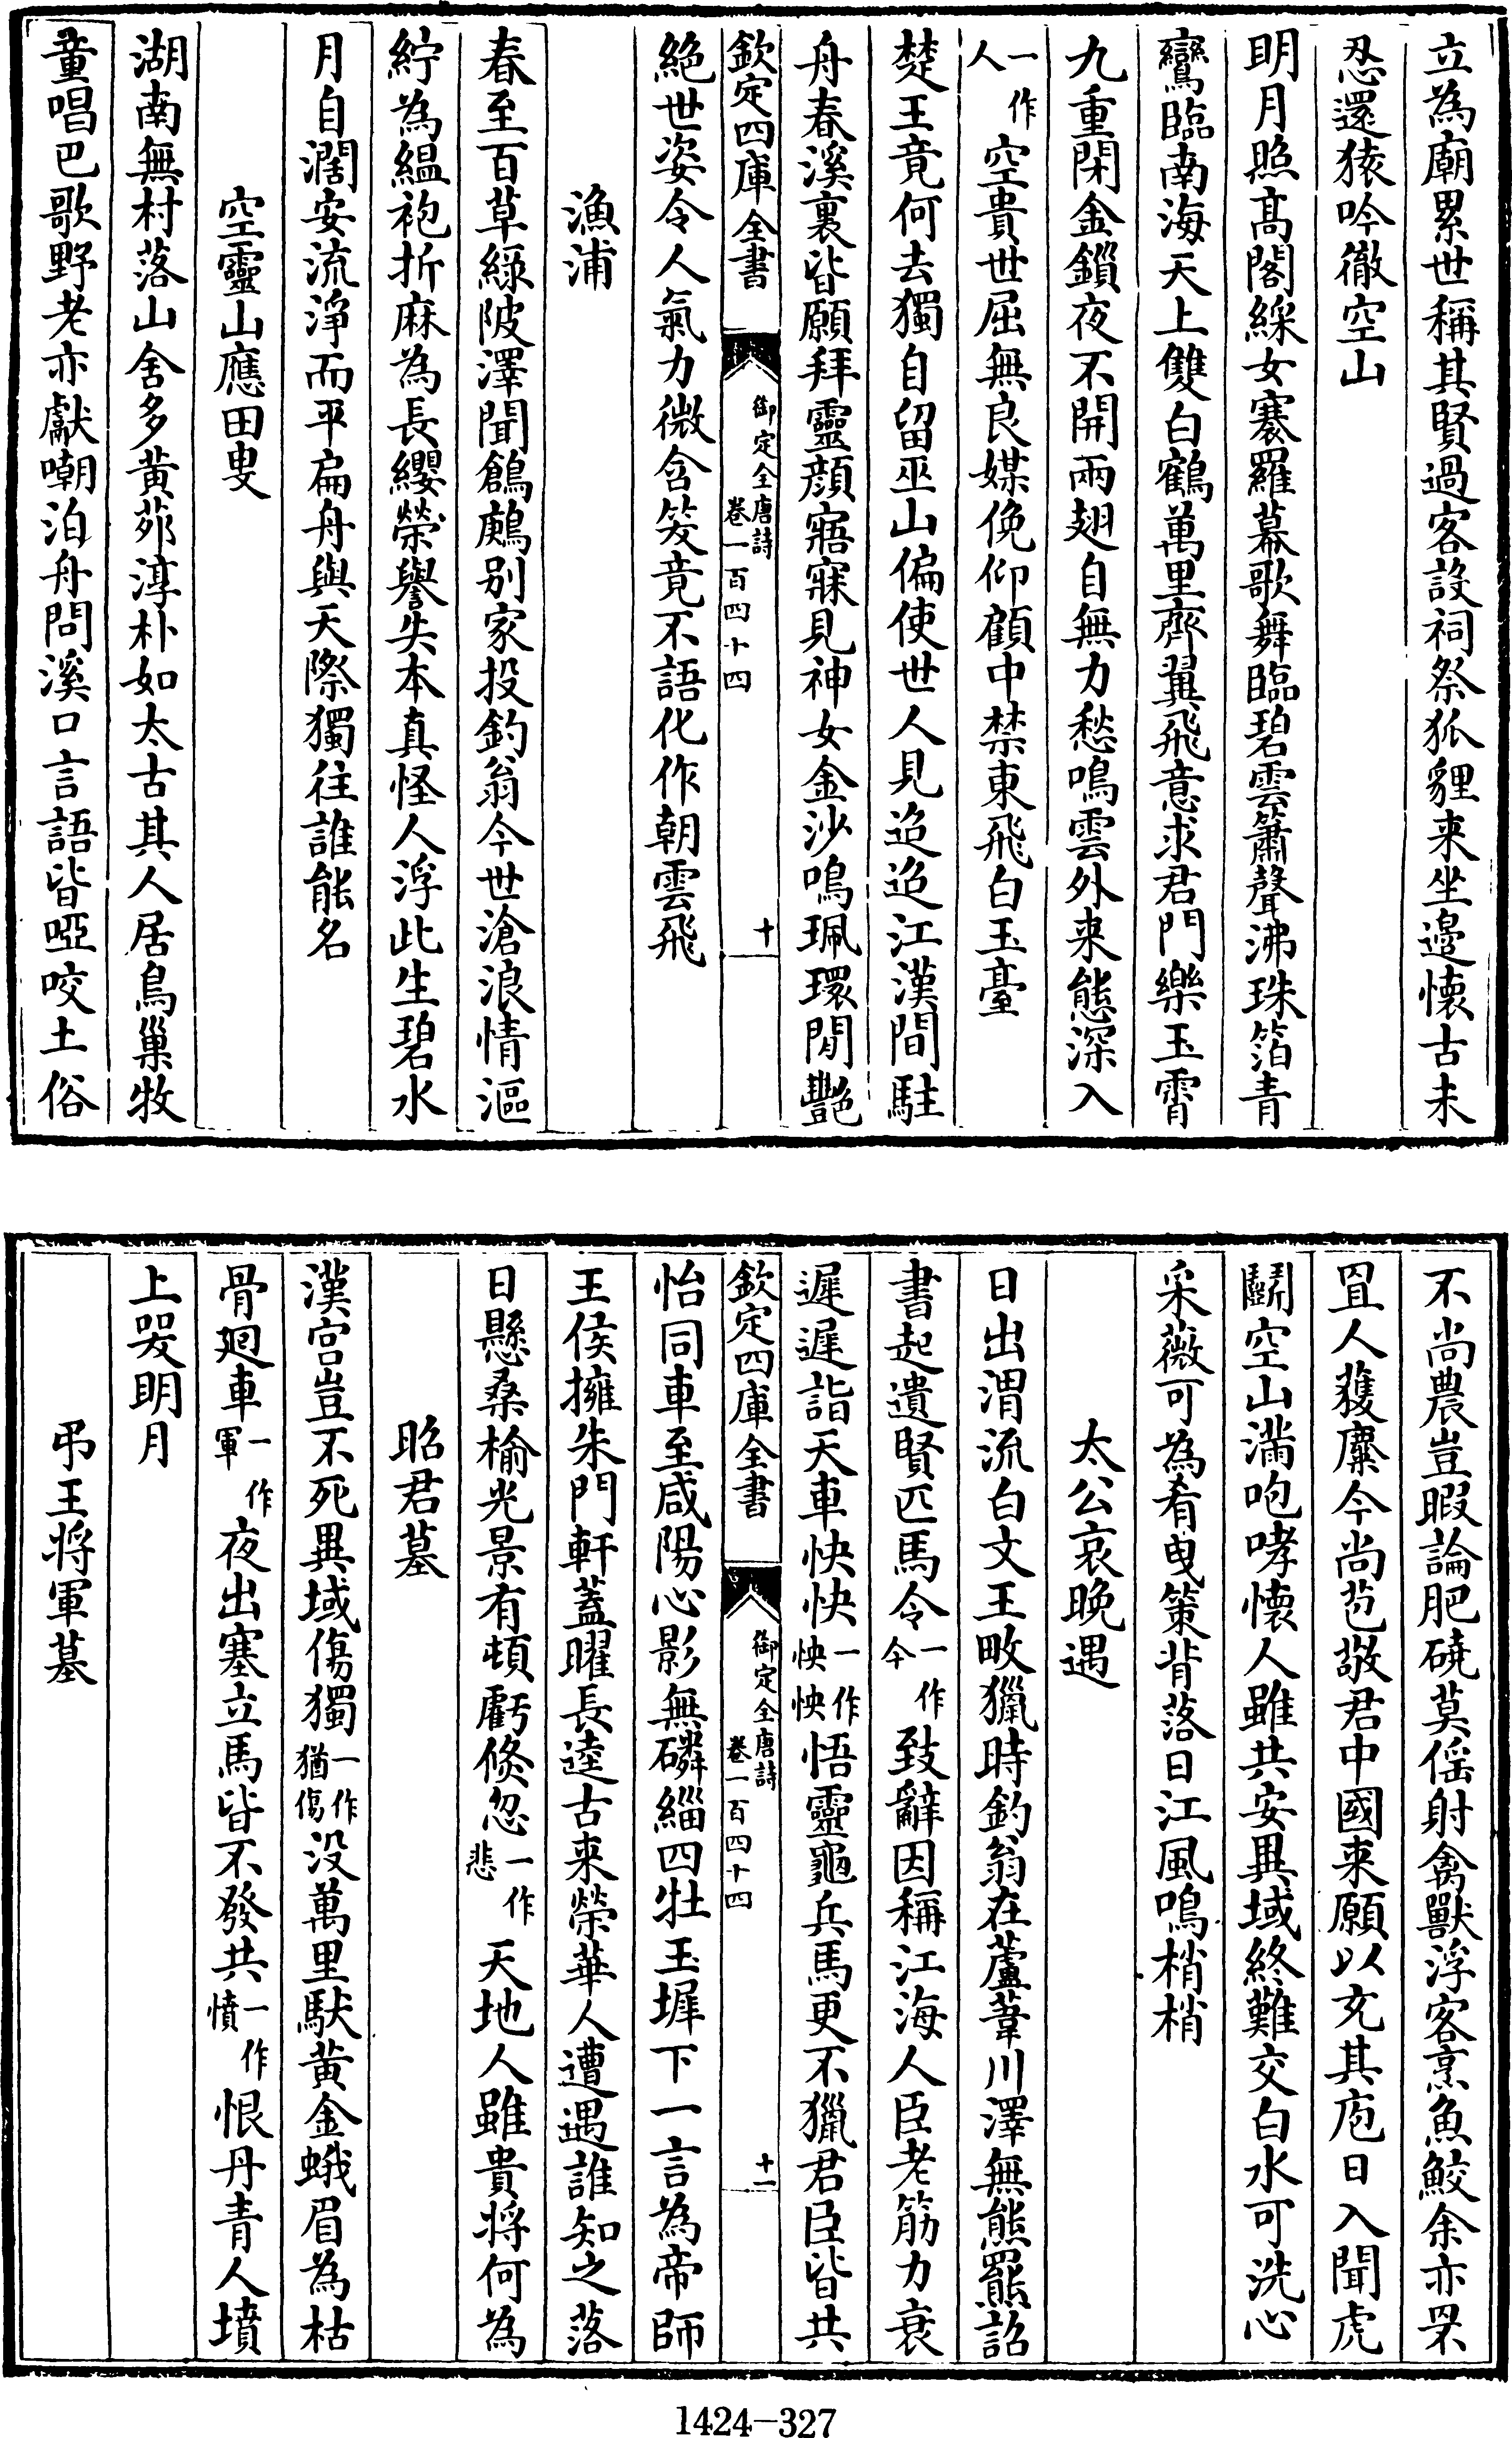 立為廟累世稱其賢過客設祠祭狐貍来坐邉懷古未
忍還猿吟徹空山
明月照髙閣綵女褰羅幕歌舞臨碧雲簫聲沸珠箔青
鸞臨南海天上雙白鶴萬里齊翼飛意求君門樂玉霄
九重閉金鎻夜不開兩翅自無力愁鳴雲外来態深入
一作人空貴世屈無良媒俛仰顧中禁東飛白玉臺
楚王竟何去獨自留巫山偏使世人見迨迨江漢間駐
舟春溪裏皆願拜靈顔寤寐見神女金沙鳴珮環閒艶
欽定四庫全書
御定全唐詩
卷一百四十四
十
絶世姿令人氣力微含笑竟不語化作朝雲飛
漁浦
春至百草緑陂澤聞鶬鶊别家投釣翁今世滄浪情漚
紵為緼袍折麻為長纓榮譽失本真怪人浮此生碧水
月自濶安流淨而平扁舟與天際獨往誰能名
空靈山應田叟
湖南無村落山舍多黄茆淳朴如太古其人居鳥巢牧
童唱巴歌野老亦獻嘲泊舟問溪口言語皆啞咬土俗
不尚農豈暇論肥磽莫徭射禽獸浮客烹魚鮫余亦罘
罝人獲麋今尚苞敬君中國来願以充其庖日入聞虎
鬭空山滿咆哮懷人雖共安異域終難交白水可洗心
采薇可為肴曳策背落日江風鳴梢梢
太公哀晚遇
日出渭流白文王畋獵時釣翁在蘆葦川澤無熊羆詔
書起遺賢匹馬令一作今致辭因稱江海人臣老筋力衰
遲遲詣天車快快一作怏怏悟靈龜兵馬更不獵君臣皆共
欽定四庫全書
御定全唐詩
卷一百四十四
十一
怡同車至咸陽心影無磷緇四牡玉墀下一言為帝師
王侯擁朱門軒蓋曜長逵古来榮華人遭遇誰知之落
日懸桑榆光景有頓虧倐忽一作悲天地人雖貴將何為
昭君墓
漢宫豈不死異域傷獨一作猶傷没萬里馱黄金蛾眉為枯
骨廻車一作軍夜出塞立馬皆不發共一作憤恨丹青人墳
上哭明月
弔王將軍墓
1424-327